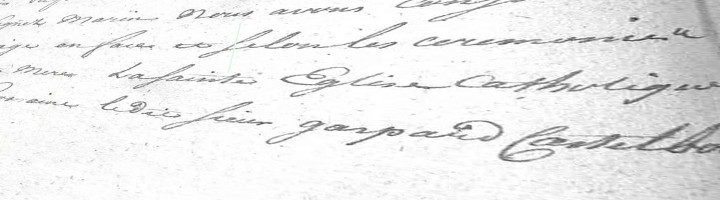 Marin nous avons
en face et selon les ceremonies
mere La Sainte Eglise Catholique
Romaine ledit sieur gaspard Castelbo